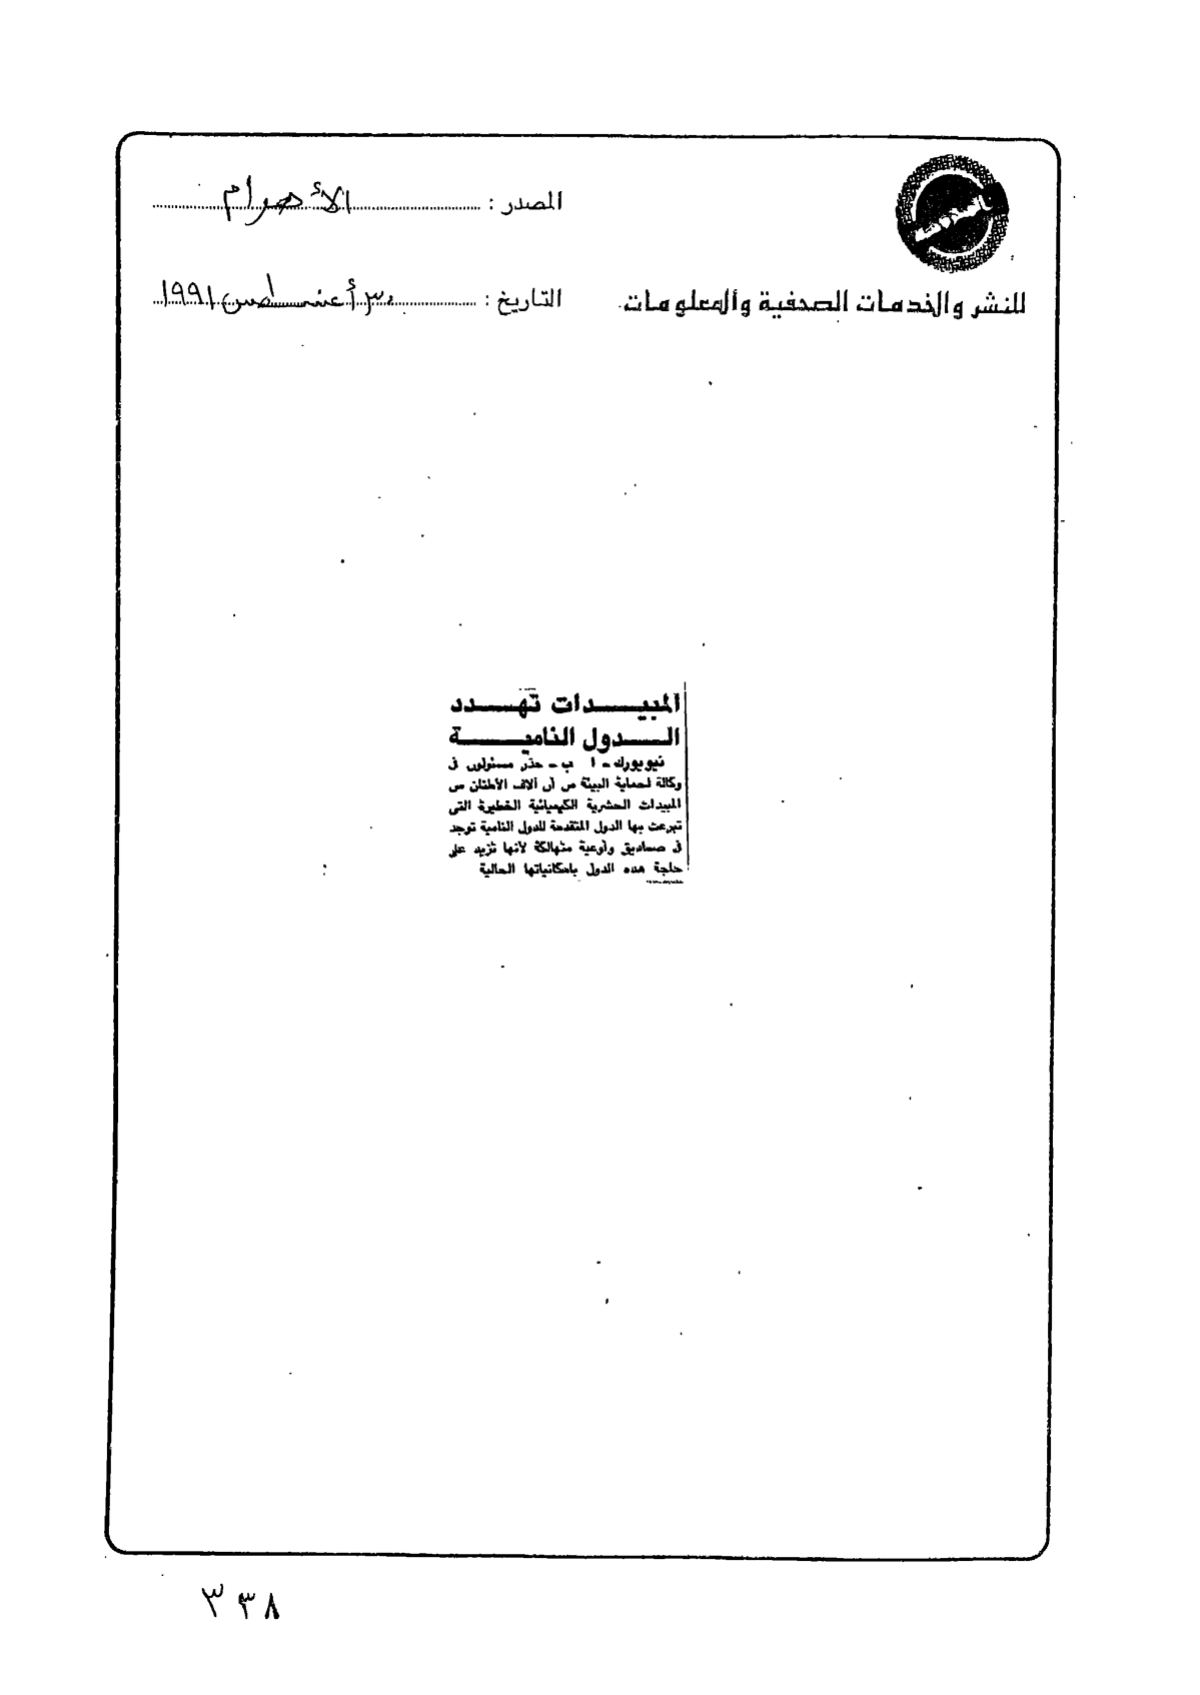 المصدر : الأهرام
للنشر والخدمات الصحفية والمعلومات
التاريخ : ٣٠ أغسطس ١٩٩١
المبيدات تهدد
الدول النامية
نيويورك - ا ب - حذر مسئولون فى
وكالة لحماية البيئة من أن آلاف الأطنان من
المبيدات الحشرية الكيميائية الخطيرة التى
تبرعت بها الدول المتقدمة للدول النامية توجد
فى صناديق وأوعية متهالكة لأنها تزيد على
حاجة هذه الدول بامكانياتها الحالية
٣٣٨